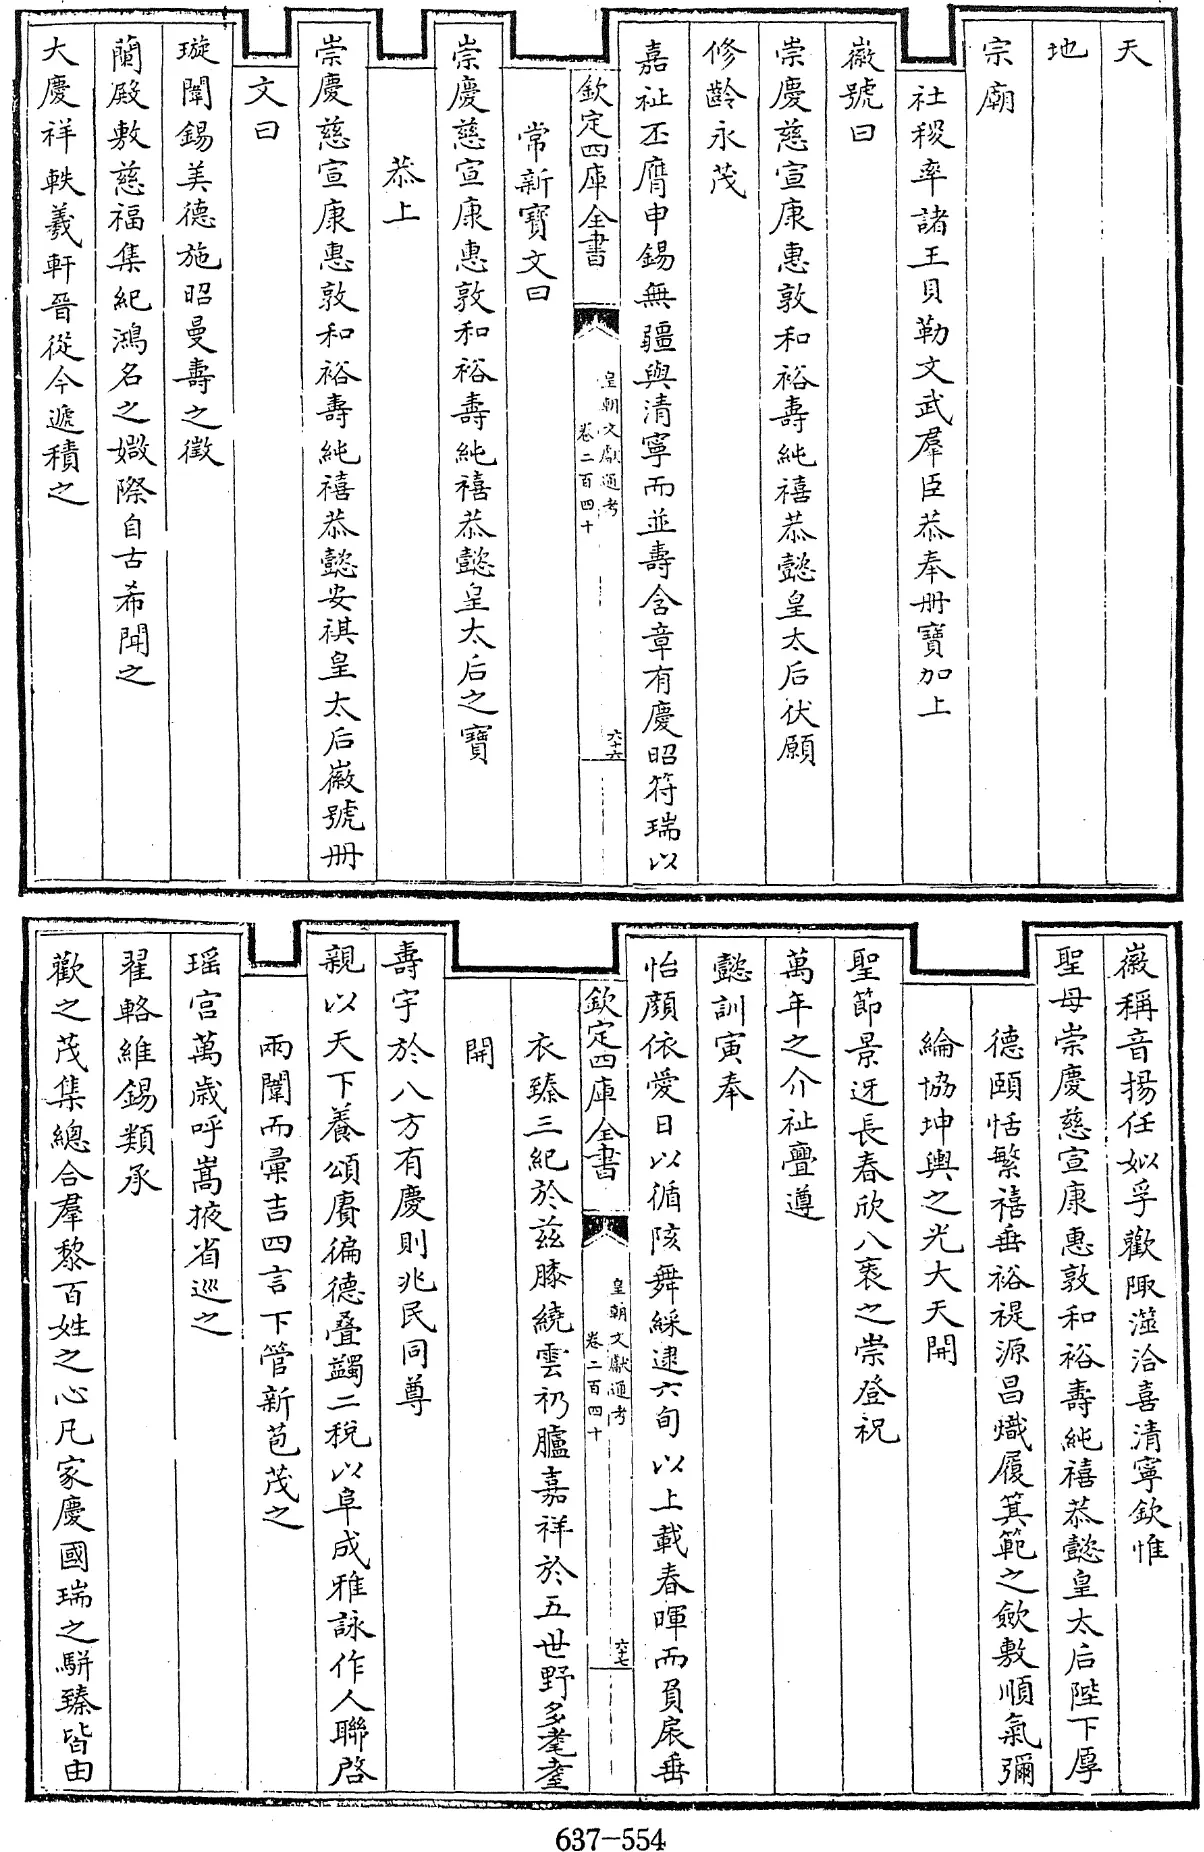 天
地
宗廟
社稷率諸王貝勒文武羣臣恭奉册寶加上
徽號曰
崇慶慈宣康惠敦和裕壽純禧恭懿皇太后伏願
修齡永茂
嘉祉丕膺申錫無疆與清寧而並壽含章有慶昭符瑞以
欽定四庫全書
皇朝文獻通考
卷二百四十
六十六
常新寶文曰
崇慶慈宣康惠敦和裕壽純禧恭懿皇太后之寶
恭上
崇慶慈宣康惠敦和裕壽純禧恭懿安祺皇太后徽號册
文曰
璇闈錫美德施昭曼壽之徵
蘭殿敷慈福集紀鴻名之媺際自古希聞之
大慶祥軼羲軒晉從今遞積之
徽稱音揚任姒孚歡陬澨洽喜清寧欽惟
聖母崇慶慈宣康惠敦和裕壽純禧恭懿皇太后陛下厚
德頤恬繁禧垂裕禔源昌熾履箕範之歛敷順氣彌
綸協坤輿之光大天開
聖節景迓長春欣八袠之崇登祝
萬年之介祉亹遵
懿訓寅奉
怡顏依愛日以循陔舞綵逮六旬以上載春暉而負扆垂
欽定四庫全書
皇朝文獻通考
卷二百四十
六十七
衣臻三紀於兹膝繞雲礽臚嘉祥於五世野多耄耋
開
壽宇於八方有慶則兆民同尊
親以天下養頌賡徧德叠蠲二税以阜成雅詠作人聯啓
兩闈而彙吉四言下管新苞茂之
瑶宫萬歳呼嵩掖省巡之
翟輅維錫類承
歡之茂集總合羣黎百姓之心凡家慶國瑞之駢臻皆由
637-554